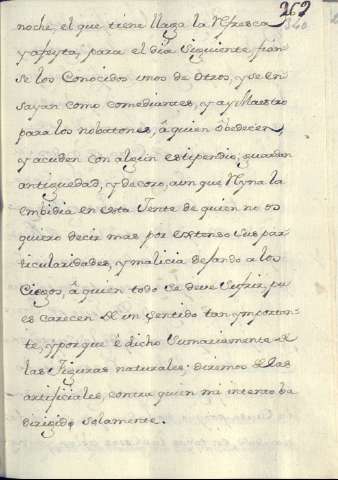 262
noche, el que tiene llaga la Refresca
y afeyta, para el dia siguiente, fian
se los Conocidos unos de otros, y se en
sayan como comediantes, y ay Maestro
para los nobatones, â quien obedecen,
y acuden con algun estipendio, guardan
antiguedad, y decoro, aun que Reyna la
embidia en esta Jente de quien no os
quiero decir mas por estenso sus par
ticularidades, y malicia dejando a los
Ciegos, â quien todo se deve sufrir, pu
es carecen de un sentido tan ymportan-
te, y porque ê dicho sumariamente de
las Figuras naturales. diremos de las
artificiales, contra quien mi intento ba
dirigido solamente.